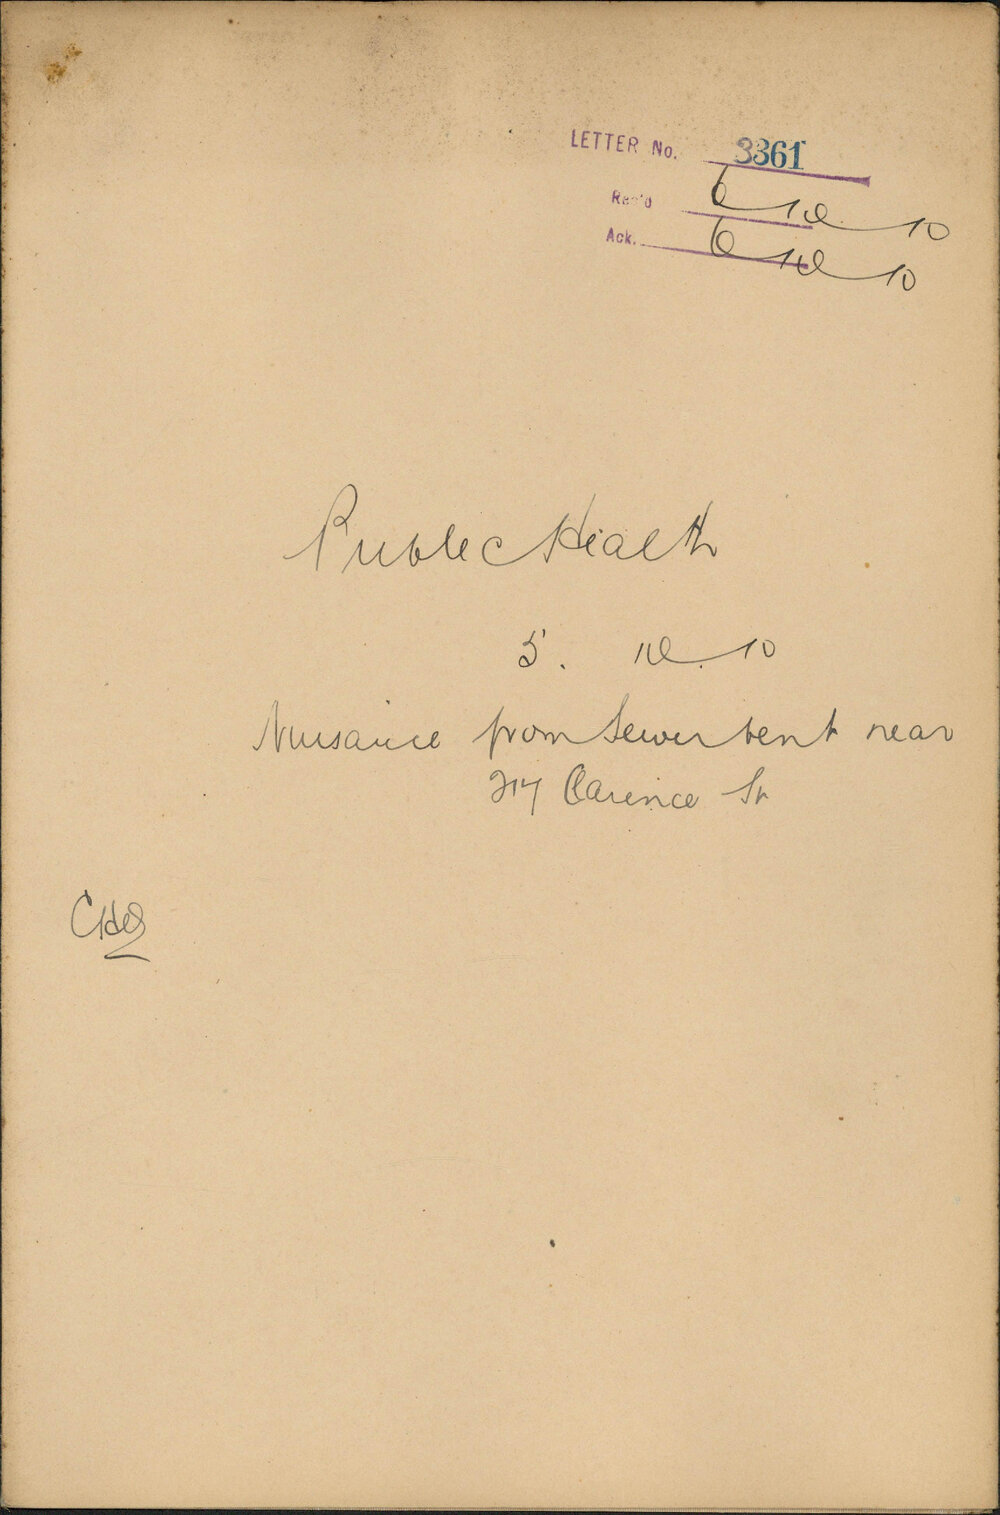 LETTER No. 3361
Rec'd 6 10 10
Ack. 6 10 10
Public Health
5. 10. 10
Nuisance from Sewer vent near
217 Clarence St